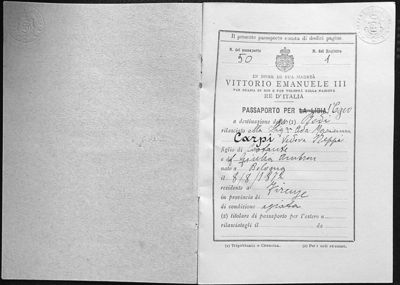 Il presente passaporto consta di dodici pagine
N. del passaporto
N. del Registro
50
1
IN NOME DI SUA MAESTÀ
VITTORIO EMANUELE III
PER GRAZIA DI DIO E PER VOLONTÀ DELLA NAZIONE
RE D'ITALIA
PASSAPORTO PER LA LIBIA l'Egeo
a destinazione di (1) Rodi
rilasciato alla Sigra Ada Marianna
Carpi Vedova
figlio di
e di Giulia
nato a Bologna
il 8/8/1872
residente a Firenze
in provincia di
di condizione agiata
(2) titolare di passaporto per l'estero n.
rilasciatogli il da
(1) Tripolitania o Cirenaica.